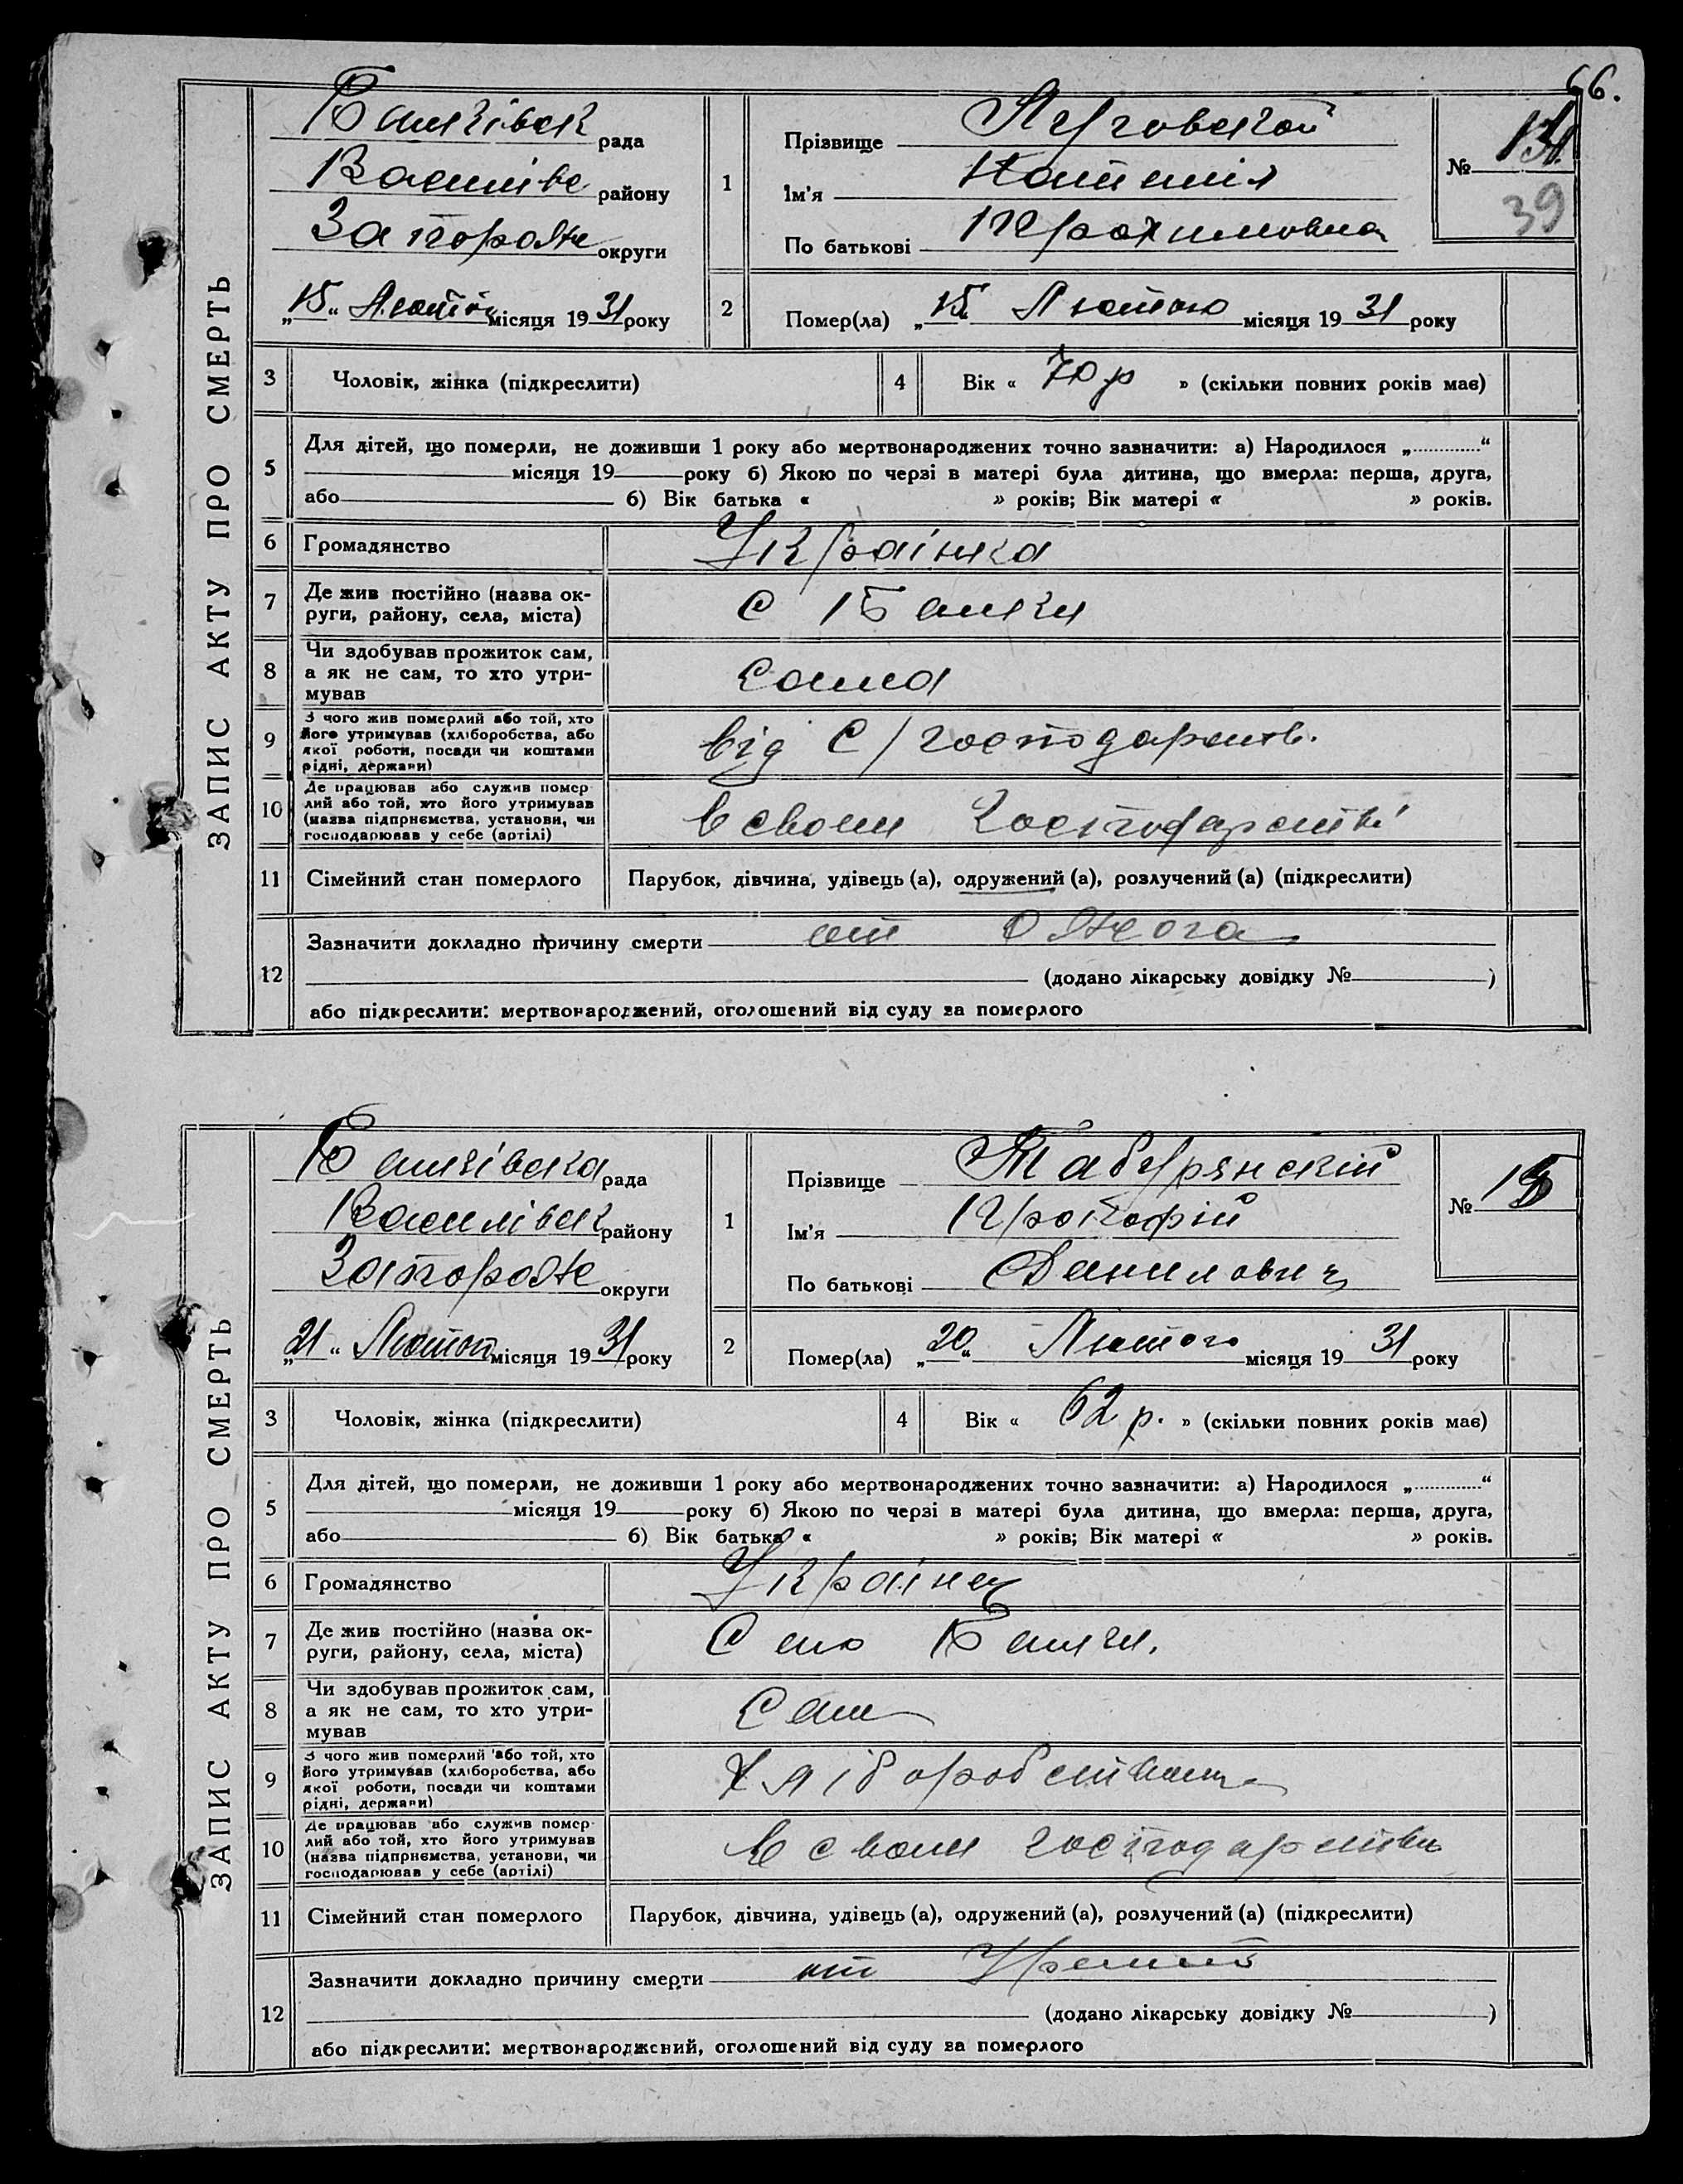 66.
ЗАПИС АКТУ ПРО СМЕРТЬ
рада
району
Запорожe округи
„15“ Лютого місяця 1931 року
1
Прізвище
Ім'я
По батькові
№
39
2
Помер(ла) „15“ Лютого місяця 1931 року
3
Чоловік, жінка (підкреслити)
4
Вік « 70 р » (скільки повних років має)
5
Для дітей, що померли, не доживши 1 року або мертвонароджених точно зазначити: а) Народилося „.............“
місяця 19 року б) Якою по черзі в матері була дитина, що вмерла: перша, друга,
або б) Вік батька « » років; Вік матері « » років.
6
Громадянство
Українка
7
Де жив постійно (назва ок-
руги, району, села, міста)
с
8
Чи здобував прожиток сам,
а як не сам, то хто утри-
мував
сама
9
З чого жив померлий або той, хто
його утримував (хліборобства, або
якої роботи, посади чи коштами
рідні, держави)
від С/господарств.
10
Де працював або служив помер-
лий або той, хто його утримував
(назва підприємства, установи, чи
господарював у себе (артілі)
в своем господарстві
11
Сімейний стан померлого
Парубок, дівчина, удівець (а), одружений (а), розлучений (а) (підкреслити)
12
Зазначити докладно причину смерти от ожога
(додано лікарську довідку № )
або підкреслити: мертвонароджений, оголошений від суду за померлого
ЗАПИС АКТУ ПРО СМЕРТЬ
рада
Василівск району
Запорожe округи
„21“ Лютого місяця 1931 року
1
Прізвище Табурянский
Ім'я Прокофій
По батькові Данилович
№ 15
2
Помер(ла) „20“ Лютого місяця 1931 року
3
Чоловік, жінка (підкреслити)
4
Вік « 62 р. » (скільки повних років має)
5
Для дітей, що померли, не доживши 1 року або мертвонароджених точно зазначити: а) Народилося „.............“
місяця 19 року б) Якою по черзі в матері була дитина, що вмерла: перша, друга,
або б) Вік батька « » років; Вік матері « » років.
6
Громадянство
Українец
7
Де жив постійно (назва ок-
руги, району, села, міста)
Село
8
Чи здобував прожиток сам,
а як не сам, то хто утри-
мував
Сам
9
З чого жив померлий або той, хто
його утримував (хліборобства, або
якої роботи, посади чи коштами
рідні, держави)
Хліборобством
10
Де працював або служив помер-
лий або той, хто його утримував
(назва підприємства, установи, чи
господарював у себе (артілі)
В своем господарстве
11
Сімейний стан померлого
Парубок, дівчина, удівець (а), одружений (а), розлучений (а) (підкреслити)
12
Зазначити докладно причину смерти от
(додано лікарську довідку № )
або підкреслити: мертвонароджений, оголошений від суду за померлого